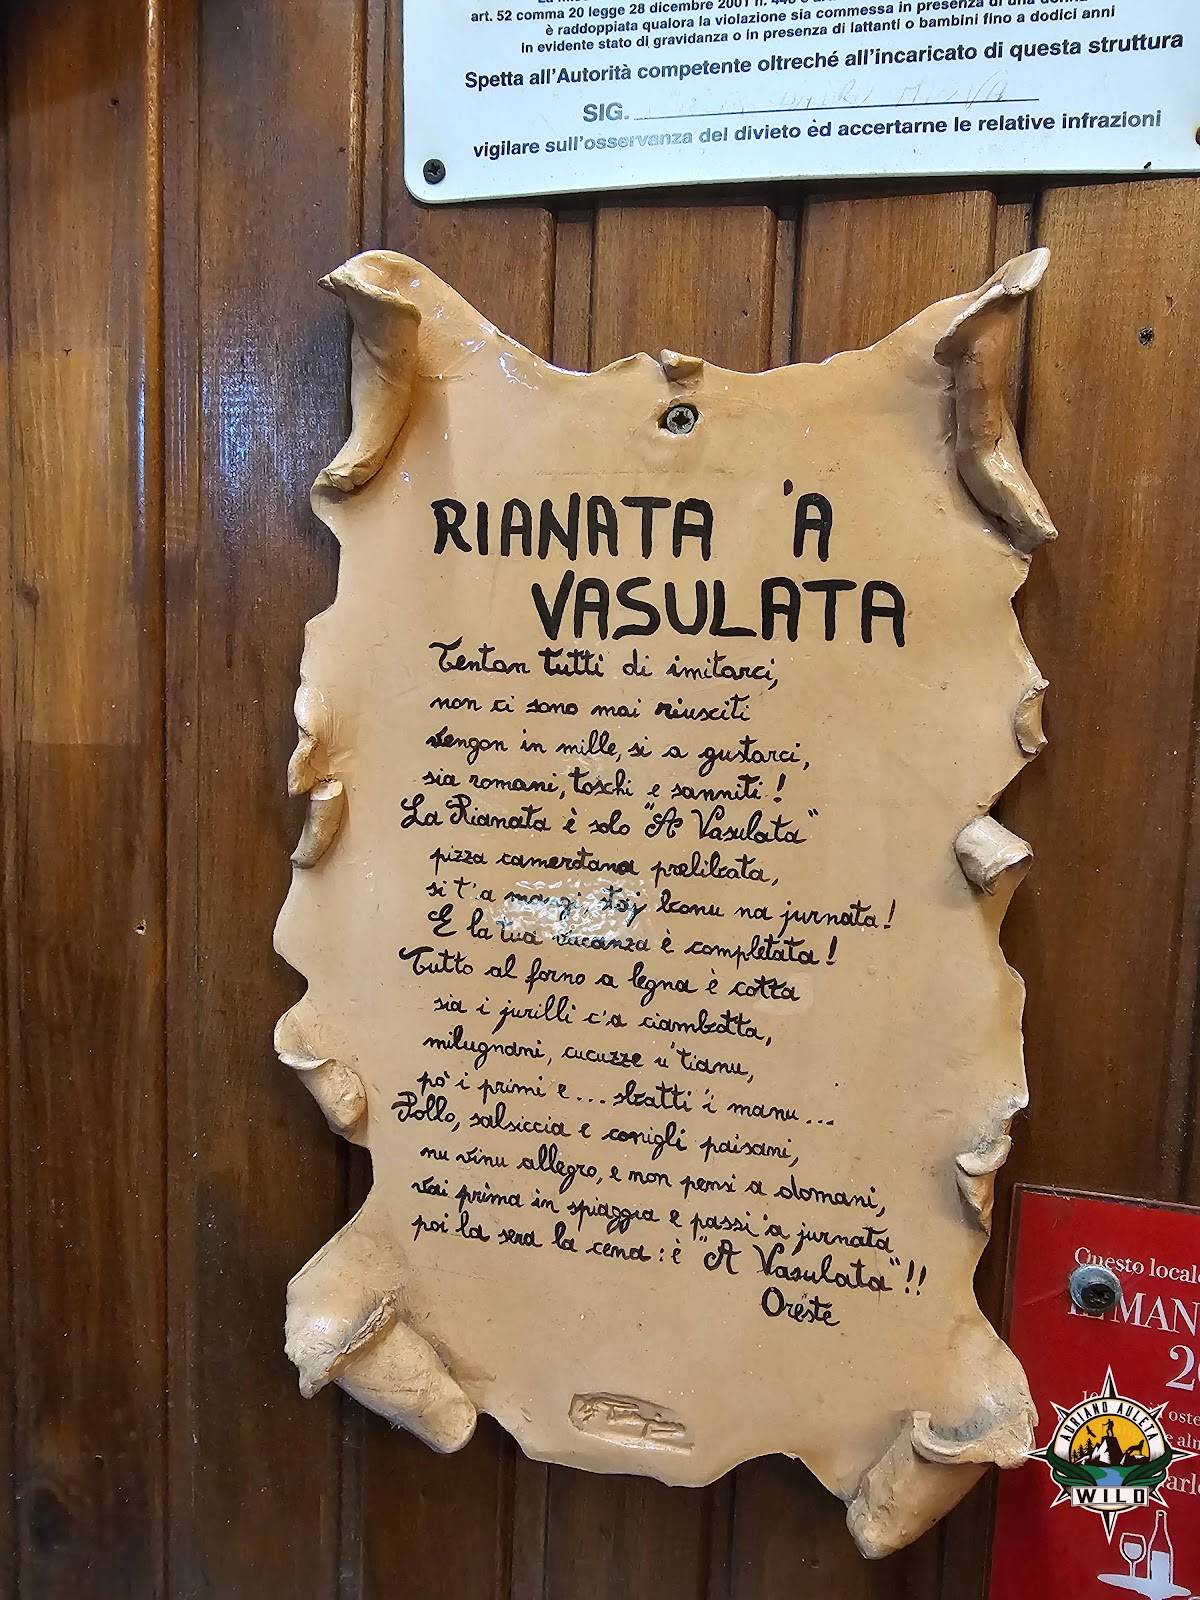 art. 52 comma 20 legge 28 dicembre 2001 n.
è raddoppiata qualora la violazione sia commessa in presenza di una donna
in evidente stato di gravidanza o in presenza di lattanti o bambini fino a dodici anni
Spetta all'Autorità competente oltreché all'incaricato di questa struttura
SIG.
vigilare sull'osservanza del divieto ed accertarne le relative infrazioni
RIANATA 'A
VASULATA
Tentan tutti di imitarci,
non ci sono mai riusciti
vengon in mille, si a gustarci,
sia romani, toschi e sanniti!
La Rianata è solo "A Vasulata"
pizza camerotana prelibata,
si t'a mangi, staj bonu na jurnata!
E la tua vacanza è completata!
Tutto al forno a legna è cotta
sia i jurilli c'a ciambotta,
milugnani, cucuzze u'tianu,
pò i primi e... sbatti 'i manu...
Pollo, salsiccia e conigli paisani,
nu vinu allegro, e non pensi a domani,
vai prima in spiaggia e passi 'a jurnata
poi la sera la cena: è "A Vasulata"!!
Oreste
Questo locale
IL MAN
ADRIANO AULETA
WILD